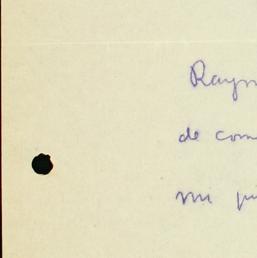 Raym
de com
mi pu